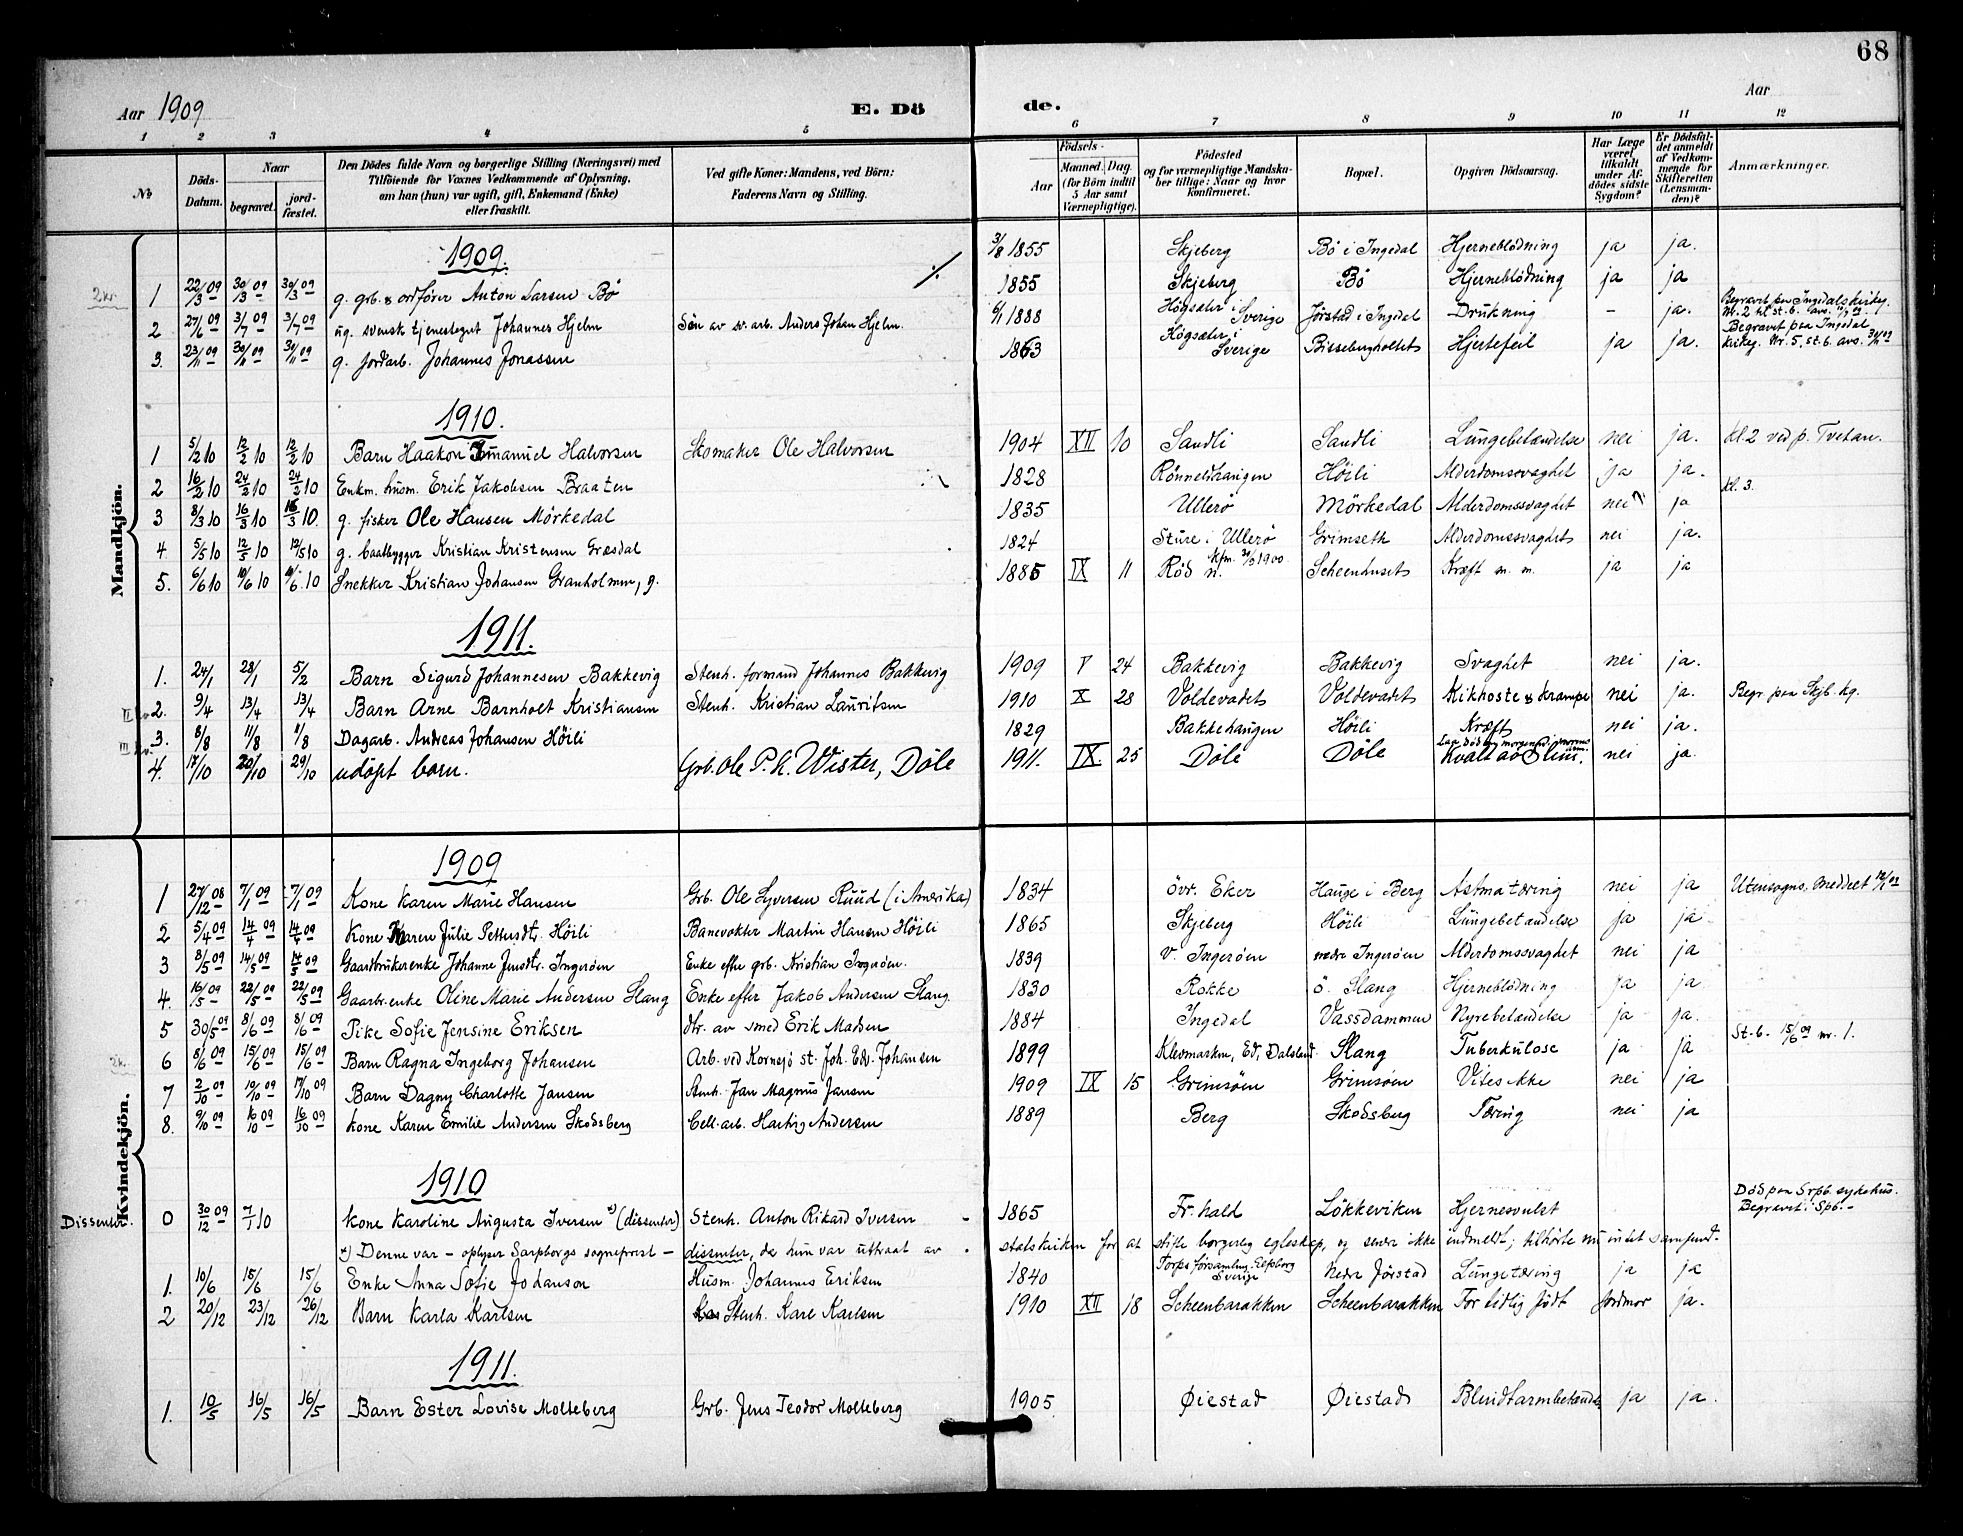 68
Aar 1909
E. Dö
de.
Aar
1 2 3 4 5 6 7 8 9 10 11 12
No
Döds-Datum.
Naar
begravet.
jord-fæstet.
Den Dödes fulde Navn og borgerlige Stilling (Næringsvei) med
Tilföiende for Voxnes Vedkommende af Oplysning,
om han (hun) var ugift, gift, Enkemand (Enke)
eller fraskilt.
Ved gifte Koner: Mandens, ved Börn:
Faderens Navn og Stilling.
Födsels-
Aar
Maaned. Dag.
(for Börn indtil
5 Aar samt
Værnepligtige).
Födested
og for værnepligtige Mandska-
ber tillige: Naar og hvor
Konfirmeret.
Bopæl.
Opgiven Dödsaarsag.
Har Læge
været
tilkaldt
under Af-
dödes sidste
Sygdom?
Er Dödsfal-
det anmeldt
af Vedkom-
mende for
Skifteretten
(Lensman-
den)?
Anmærkninger.
Mandkjön.
1909.
2kr. 1 22/3 09 30/3 09 30/3 09 g. grb. & ordförer Anton Larsen Bö 3/8 1855 Skjeberg Bö i Ingedal Hjerneblödning ja ja.
1855 Skjeberg Bö Hjerneblödning ja ja
2 27/6 09 3/7 09 3/7 09 ug. svensk tjenestegut Johannes Hjelm Sön av sv. arb. Anders Johan Hjelm. 6/1 1888 Högsæter i Sverige Jörstad i Ingedal Drukning – ja. Begravet paa Ingedals kirkeg. Nr. 2 til st.b.
3. 23/11 09 30/11 09 30/11 09 g. jordarb. Johannes Jonassen 1863 Högsæter i Sverige Bisseberghollet Hjertefeil ja ja. Begravet paa Ingedal kirkeg. Nr. 5, st.b. avs. 30/11 09
1910.
1 5/2 10 12/2 10 12/2 10 Barn Haakon Emanuel Halvorsen Skomaker Ole Halvorsen 1904 XII 10 Sandli Sandli Lungebetændelse nei ja. kl. 2 ved p. Tvetan.
2 16/2 10 24/2 10 24/2 10 Enkm. husm. Erik Jakobsen Braaten 1828 Rönneldhaugen Höili Alderdomssvaghet ja ja. kl. 3.
3 8/3 10 16/3 10 16/3 10 g. fisker Ole Hansen Mörkedal 1835 Ullerö Mörkedal Alderdomssvaghet nei? ja
4. 5/5 10 12/5 10 12/5 10 g. baatbygger Kristian Kristensen Græsdal 1824 Sture i Ullerö Grimseth Alderdomssvaghet nei ja.
5. 6/6 10 10/6 10 10/6 10 Snekker Kristian Johansen Granholmen, g. 1885 IX 11 Röd n. kfm. 30/9 1900 Scheenhuset Kræft m. m. ja ja
1911.
1. 24/1 28/1 5/2 Barn Sigurd Johannesen Bakkevig Stenh. formand Johannes Bakkevig 1909 V 24 Bakkevig Bakkevig Svaghet nei ja.
2. 9/4 13/4 13/4 Barn Arne Barnholt Kristiansen Stenh. Kristian Lauritsen 1910 X 28 Voldevadet Voldevadet Kikhoste & Krampe nei ja. Begr. paa Skjb. kg.
3. 8/8 11/8 11/8 Dagarb. Andreas Johansen Höili 1829 Bakkehaugen Höili Kræft nei ja.
4. 17/10 20/10 29/10 udöpt barn. Grb. Ole P. A. Wister, Döle 1911. IX. 25 Döle Döle Laa död om morgenen i mormors nei ja.
Kvindekjön.
1909
1 27/12 08 7/1 09 7/1 09 Kone Karen Marie Hansen Grb. Ole Syversen Ruud (i Amerika) 1834 övr. Eker Hauge i Berg Astma tæring nei ja Utensogns. Meddelt 12/1 09
2 5/4 09 14/4 09 14/4 09 Kone Karen Julie Pettersdtr. Höili Banevokter Martin Hansen Höili 1865 Skjeberg Höili Lungebetændelse ja ja
3 8/5 09 14/5 09 14/5 09 Gaardbrukerenke Johanne Jensdtr. Ingeröen Enke efter grb. Kristian Ingeröen. 1839 v. Ingeröen nedre Ingeröen Alderdomssvaghet nei ja
4. 16/5 09 22/5 09 22/5 09 Gaarbr. enke Oline Marie Andersen Slang Enke efter Jakob Andersen Slang. 1830 Rokke ö. Slang Hjerneblödning ja ja.
5 30/5 09 8/6 09 8/6 09 Pike Sofie Jensine Eriksen dtr. av smed Erik Madsen 1884 Ingedal Vassdammen Nyrebetændelse ja ja.
2k. 6 8/6 09 15/6 09 15/6 09 Barn Ragna Ingeborg Johansen Arb. ved Kornsjö st. Joh. Edv. Johansen 1899 Klevmarken, Ed, Dalsland Slang Tuberkulose ja ja St.b. 15/6 09 nr. 1.
7 2/10 09 10/10 09 17/10 09 Barn Dagny Charlotte Jansen Stenh. Jan Magnus Jansen 1909 IX 15 Grimsöen Grimsöen Vites ikke nei ja
8. 9/10 09 16/10 09 16/10 09 Kone Karen Emilie Andersen Skodsberg Cell. arb. Hartvig Andersen 1889 Berg Skodsberg Tæring nei ja
1910
Dissenter. 0 30/12 09 7/1 10 Kone Karoline Augusta Iversen *) (dissenter) Stenh. Anton Rikard Iversen 1865 Fr.hald Lökkeviken Hjernesvulst Död paa Srpb. sykehus. Begravet i Spb. –
*) Denne var – oplyser Sarpborgs sogneprest – dissenter, da hun var uttraat av statskirken for at stifte borgerlig egteskap, og senere ikke indmeldt; tilhörte nu intet samfund.
1. 10/6 15/6 15/6 Enke Anna Sofie Johanson Husm. Johannes Eriksen 1840 Torps församling Elfsborg Sverige Nedre Jörstad Lungetæring ja ja
2 20/12 23/12 26/12 Barn Karla Karlsen Stenh. Karl Karlsen 1910 XII 18 Scheenbarakken Scheenbarakken For tidlig födt Jordmor ja.
1911.
1. 10/5 16/5 16/5 Barn Ester Lovise Molteberg Grb. Jens Teodor Molteberg 1905 Öiestad Öiestad Blindtarmbetændelse ja ja.